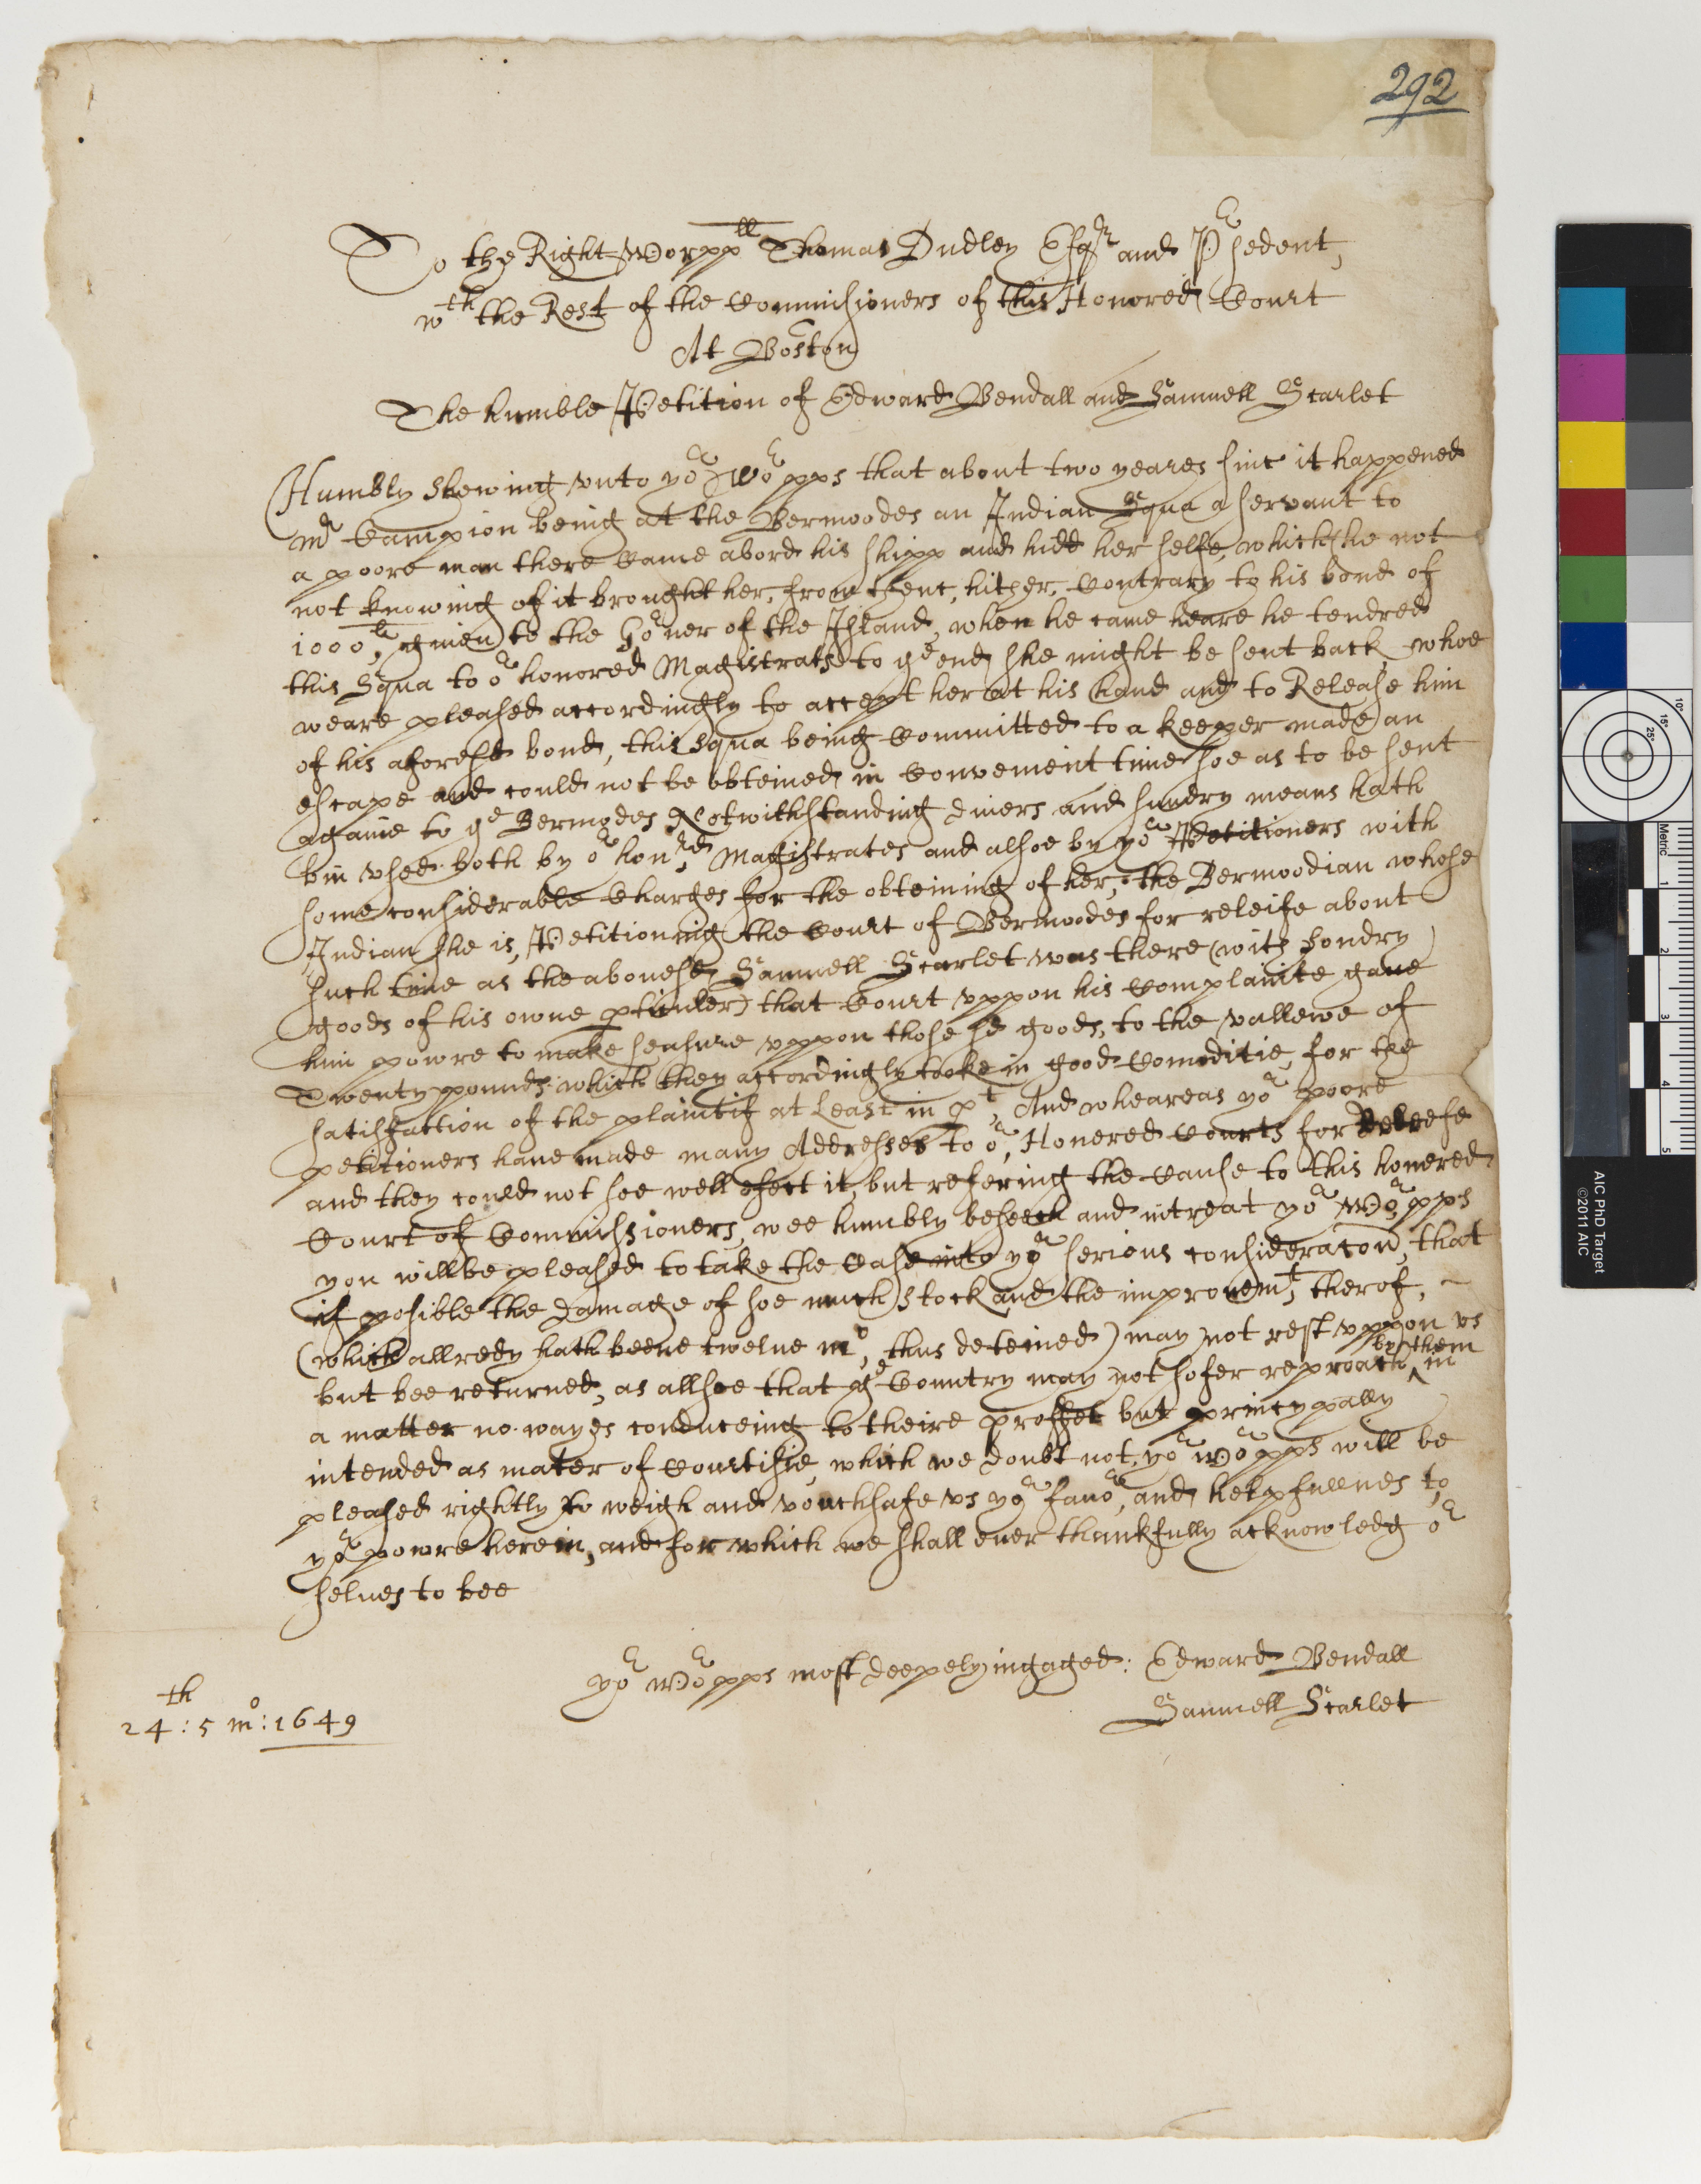 292
To the Right Worpp^ll Thomas Dudley Esq^r and P^rsedent,
w^th the Rest of the Commissioners of this Honored Court
At Boston
The humble Petition of Edward Bendall and Samuell Scarlet
Humbly Shewing vnto yo^r Wo^rpps that about two yeares sinc it happened
m^r Campion being at the Bermoodes an Indian Squa a servant to
a poore man there Came abord his shipp and hidd her selfe, which he not
not knowing of it brought her, from thenc, hither, Contrary to his bond of
1000^l, giuen to the Go^rner of the Island, when he came heare he tendred
this Squa to o^r honored Magistrats to y^e end she might be sent back whoe
weare pleased accordingly to accept her at his hand and to Release him
of his aforesd bond, this squa being Committed to a keeper made an
escape and could not be obteined in Convenient time soe as to be sent
againe to y^e Bermodes Notwithstanding diuers and sundry means hath
bin vsed both by o^r hon^rd, Magistrates and alsoe by yo^r Petitioners with
some considerable Charges for the obteining of her, the Bermoodian whose
Indian she is, Petitioning the Court of Bermoodes for releife about
such time as the abouesd Samuell Scarlet was there (with sondry
goods of his owne pticuler) that Court vppon his Complainte gaue
him powre to make seasure vppon those sd goods, to the vallewe of
Twenty pounds which they accordingly tooke in good Comoditie, for the
satisfaction of the plaintif at Least in p^t, And wheareas yo^r poore
petitioners haue made many Addresses to o^r, Honered Courts for Releefe
and they could not soe well efect it, but refering the Cause to this honered
Court of Commissioners, wee humbly beseech and intreat yo^r Wo^rpps
you will be pleased to take the Case into yo^r serious consideracon, that
if posible the damage of soe much stock and the improuem^t, therof,
(which allredy hath beene twelue m^o, thus deteined) may not rest vppon vs
but bee returned, as allsoe that y^e Country may not sofer reproach ^by them in
a matter no wayes conduceing to theire proffet but princypally
intended as mater of Courtisie, which we doubt not, yo^r wo^rpps will be
pleased rightly to weigh and vouchsafe vs yo^r fauo^r, and helpfullnes to
yo^r powre herein, and for which we shall euer thankfully acknowledg o^r
selues to bee
yo^r Wo^rpps most deepely ingaged: Edward Bendall
Samuell Scarlet
24^th : 5 m^o : 1649
10°
15°
25°
Metric
1
2
3
4
5
AIC PhD Target
©2011 AIC